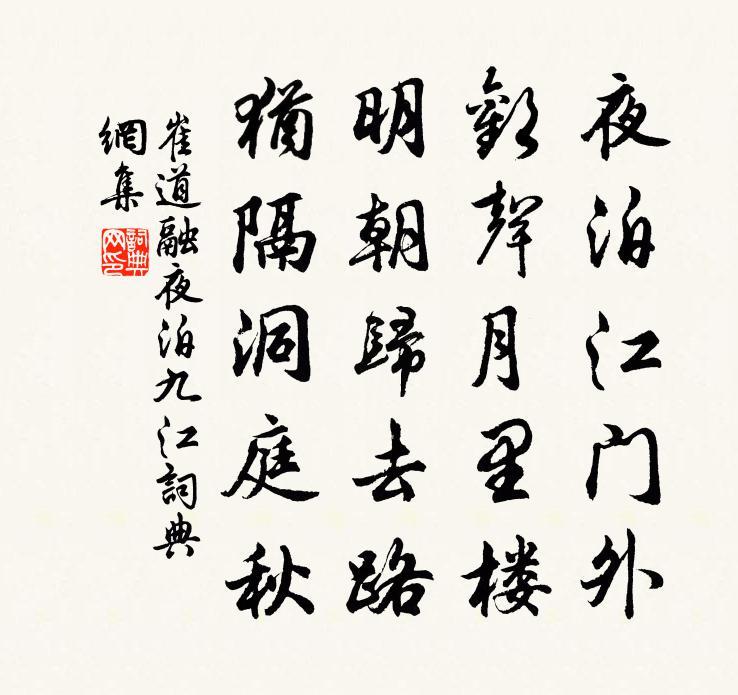 夜泊江门外
歡聲月里楼
明朝歸去路
猶隔洞庭秋
崔道融夜泊九江詞典
網集
詞典
网印